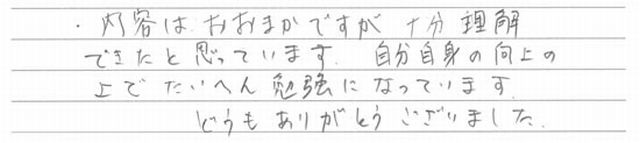 ・内容は、おおまかですが 十分理解
できたと思っています. 自分自身の向上の
上でたいへん勉強になっています.
どうもありがとうございました.